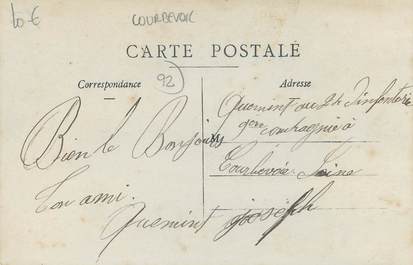 10 €
COURBEVOIE
CARTE POSTALE
Correspondance
92
Adresse
Bien le Bonjour
Ton ami
Quemint joseph
Quemint au 24 d'infanterie
compagnie à
Courbevoie Seine